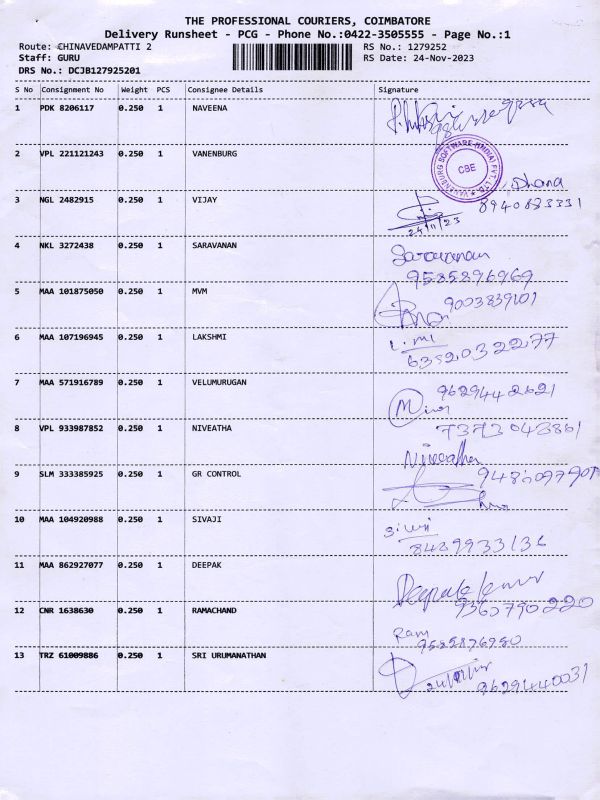 THE PROFESSIONAL COURIERS, COIMBATORE
Delivery Runsheet - PCG - Phone No.:0422-3505555 - Page No.:1
Route: CHINAVEDAMPATTI 2 RS No.: 1279252
Staff: GURU RS Date: 24-Nov-2023
DRS No.: DCJB127925201
S No Consignment No Weight PCS Consignee Details Signature
1 PDK 8206117 0.250 1 NAVEENA
2 VPL 221121243 0.250 1 VANENBURG
VANENBURG SOFTWARE (INDIA) PVT. LTD.
CBE
Dhana
3 NGL 2482915 0.250 1 VIJAY 8940823331
24/11/23
4 NKL 3272438 0.250 1 SARAVANAN Saravanan
9585896969
5 MAA 101875050 0.250 1 MVM 9003839101
6 MAA 107196945 0.250 1 LAKSHMI
6352032277
7 MAA 571916789 0.250 1 VELUMURUGAN 9629442621
8 VPL 933987852 0.250 1 NIVEATHA 7373043861
Niveatha
9 SLM 333385925 0.250 1 GR CONTROL
10 MAA 104920988 0.250 1 SIVAJI
8489933136
11 MAA 862927077 0.250 1 DEEPAK Deepak Kumar
9360790220
12 CNR 1638630 0.250 1 RAMACHAND
Ram
9585876950
13 TRZ 61009886 0.250 1 SRI URUMANATHAN
9629440031